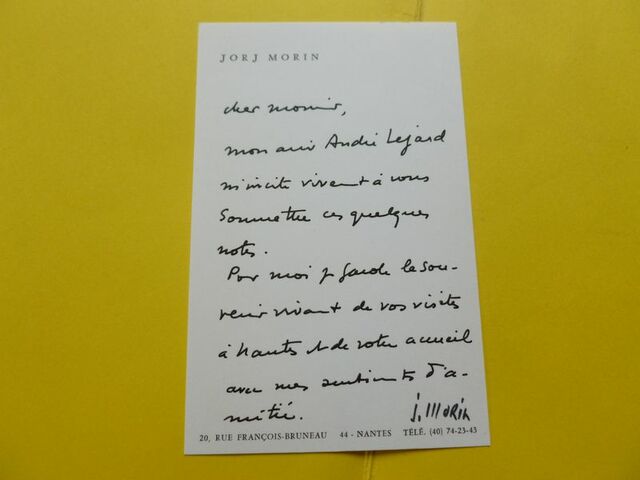 JORJ MORIN
cher monsieur,
mon ami André Lejard
m'incite vivement à vous
soumettre ces quelques
notes.
Pour moi je garde le sou-
venir vivant de vos visites
à Nantes et de votre accueil
avec mes sentiments d'a-
mitié.
J. MORIN
20, RUE FRANÇOIS-BRUNEAU 44 - NANTES TÉLÉ. (40) 74-23-43